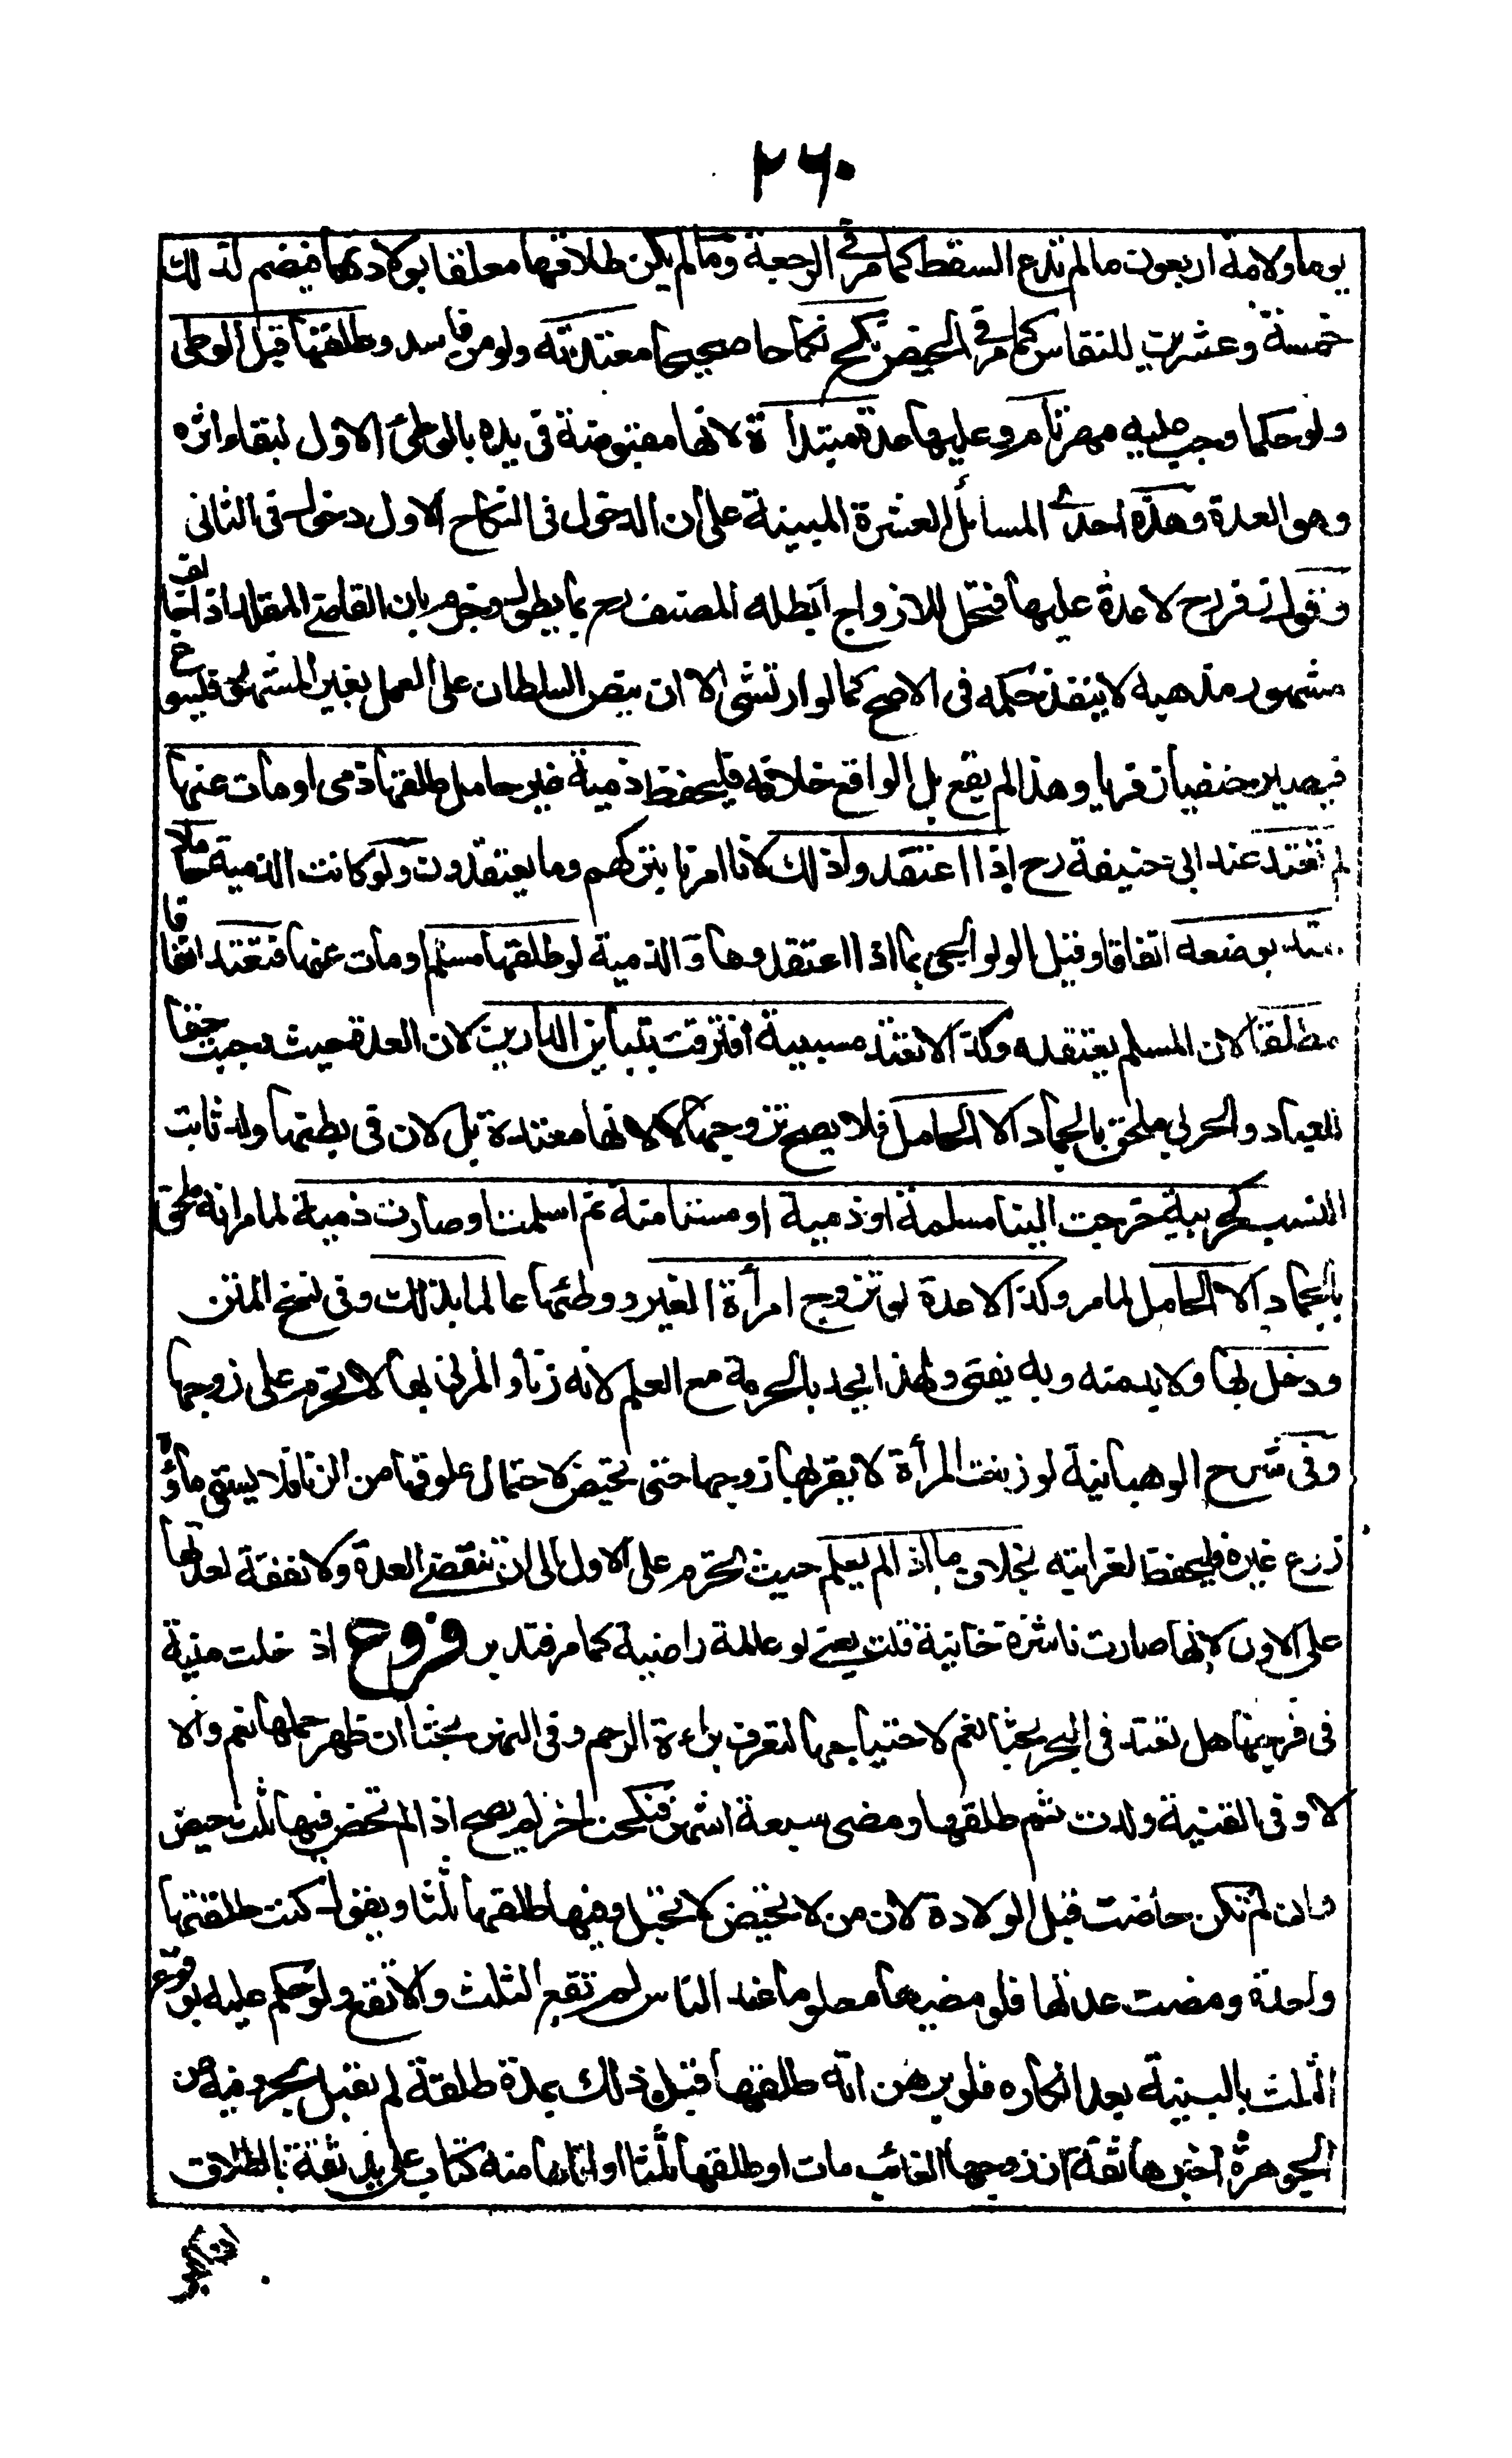 ٢٦٠
يوما ولامة اربعون ما لم تدع السقط كما مر فى الرجعة وما لم يكن طلاقها معلقا بولادتها فيضم لذلك
خمسة وعشرين للنفاس كما مر فى الحيض نكح نكاحا صحيحا معتدته ولو من فاسد وطلقها قبل الوطى
ولو حكما وجب عليه مهر تام وعليها عدة مبتدأة لانها مقبوضة فى يده بالوطئ الاول لبقاء اثره
وهو العدة وهذه احدى المسائل العشرة المبينة على ان الدخول فى النكاح الاول دخول فى الثانى
وقول زفر رح لا عدة عليها فتحل للازواج ابطله المصنف رح بما يطول وجزم بان القاضى المقلد اذا خالف
مشهور مذهبه لا ينفذ حكمه فى الاصح كما لو ارتشى الا ان ينص السلطان على العمل بغير المشهور فيسوغ
فيصير حنفيا زفريا وهذا لم يقع بل الواقع خلافه فليحفظ ذمية غير حامل طلقها ذمى او مات عنها
لم تعتد عند ابى حنيفة رح اذا اعتقدوا ذلك لانا امرنا بتركهم وما يعتقدون ولو كانت الذمية حاملا
تعتد بوضعه اتفاقا وقيل الولوالجى بما اذا اعتقدوها والذمية لو طلقها مسلم او مات عنها فتعتد اتفاقا
مطلقا لان المسلم يعتقده وكذا لا تعتد مسبية افترقت بتباين الدارين لان العدة حيث وجبت حقا
للعباد والحربى ملحق بالجماد الا الحامل فلا يصح تزوجها لا لانها معتدة بل لان فى بطنها ولد ثابت
النسب كحربية خرجت الينا مسلمة او ذمية او مستامنة ثم اسلمت او صارت ذمية لما مر انه ملحق
بالجماد الا الحامل لما مر وكذا لا عدة لو تزوج امرأة الغير ووطئها عالما بذلك وفى نسخ المتن
ودخل بها ولا بد منه وبه يفتى ولهذا يحد بالحرمة مع العلم لانه زنا والمزنى بها لا تحرم على زوجها
وفى شرح الوهبانية لو زنت المرأة لا يقربها زوجها حتى تحيض لاحتمال علوقها من الزنا فلا يسقى ماؤه
زرع غيره فليحفظ لغرابته بخلاف ما اذا لم يعلم حيث تحرم على الاول الى ان تنقضى العدة ولا نفقة لعدتها
على الاول لانها صارت ناشزة خانية قلت يعنى لو عالمة راضية كما مر فتدبر فروع ادخلت منيه
فى فرجها هل تعتد فى البحر بحثا نعم لاحتياجها لتعرف براءة الرحم وفى النهر بحثا ان ظهر حملها نعم والا
لا وفى القنية ولدت ثم طلقها ومضى سبعة اشهر فنكحت اخر لم يصح اذا لم تحض فيها ثلث حيض
وان لم تكن حاضت قبل الولادة لان من لا تحيض لا تحبل وفيها طلقها ثلثا ويقول كنت طلقتها
واحدة ومضت عدتها فلو مضيها معلوما عند الناس لم تقع الثلث والا تقع ولو حكم عليه بوقوع
الثلث بالبينة بعد انكاره فلو برهن انه طلقها قبل ذلك بمدة طلقة لم تقبل بحر وفيه من
الجوهرة اخبرها ثقة ان زوجها الغائب مات او طلقها ثلثا او اتاها منه كتاب على يد ثقة بالطلاق